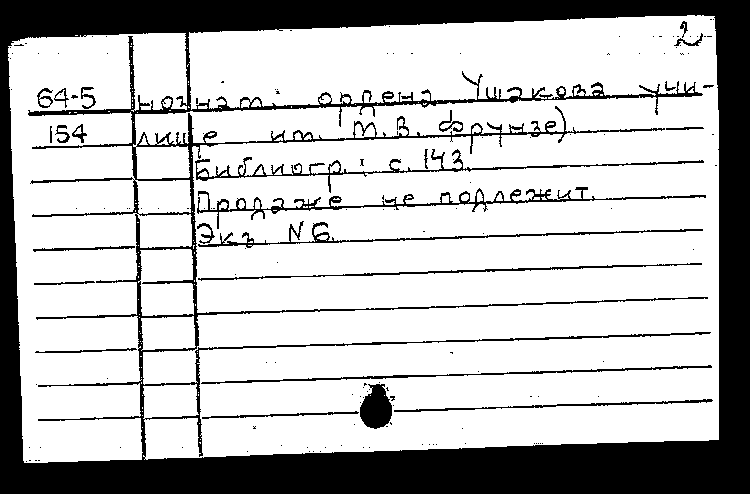 2
64-5 нознам. ордена Ушакова учи-
154 лище им. М.В. Фрунзе).
Библиогр.: с. 143.
Продаже не подлежит.
Экз. N6.